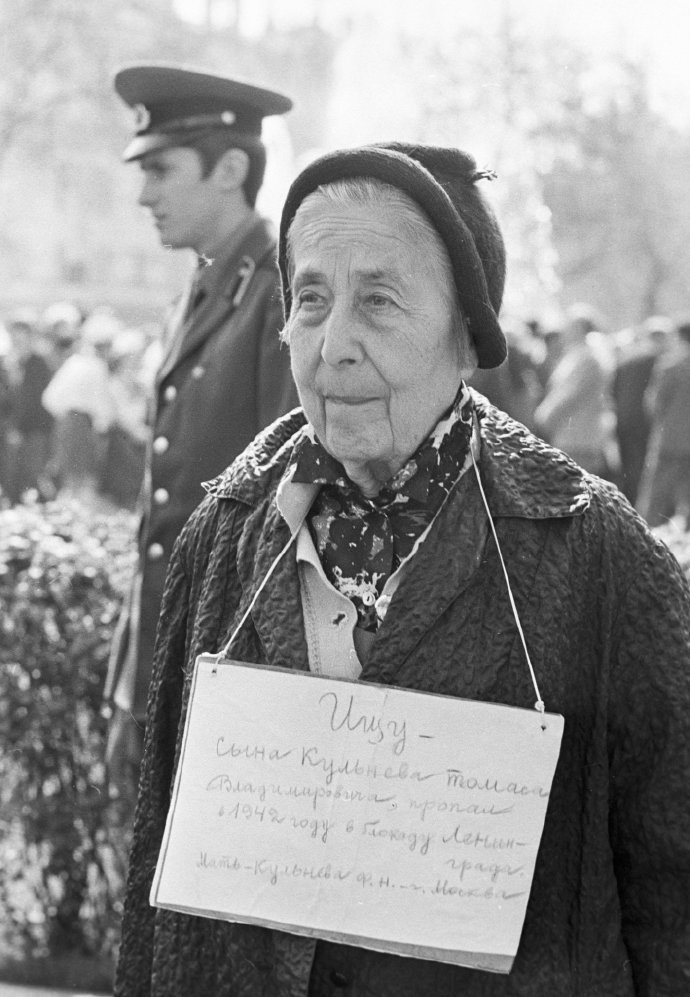 Ищу –
сына Кульнева Томаса
Владимировича, пропал
в 1942 году в блокаду Ленин-
града.
Мать – Кульнева Ф.Н. – г. Москва